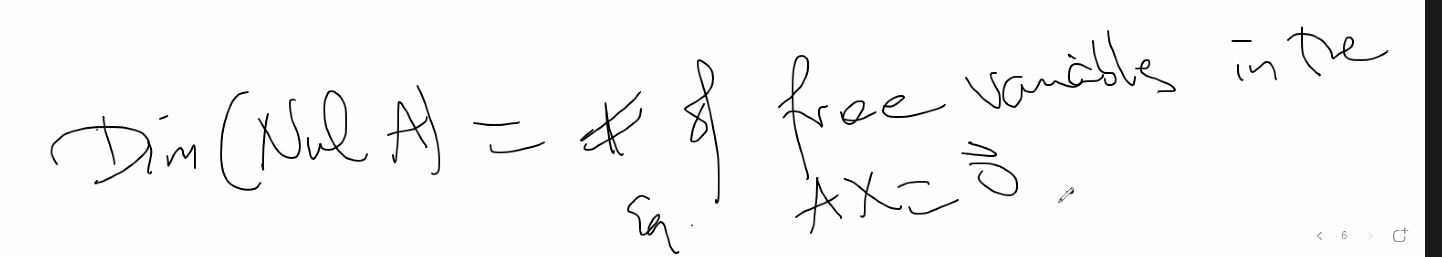 Dim(Nul A) = # of free variables in the
Eq. AX = \vec{0}.
6